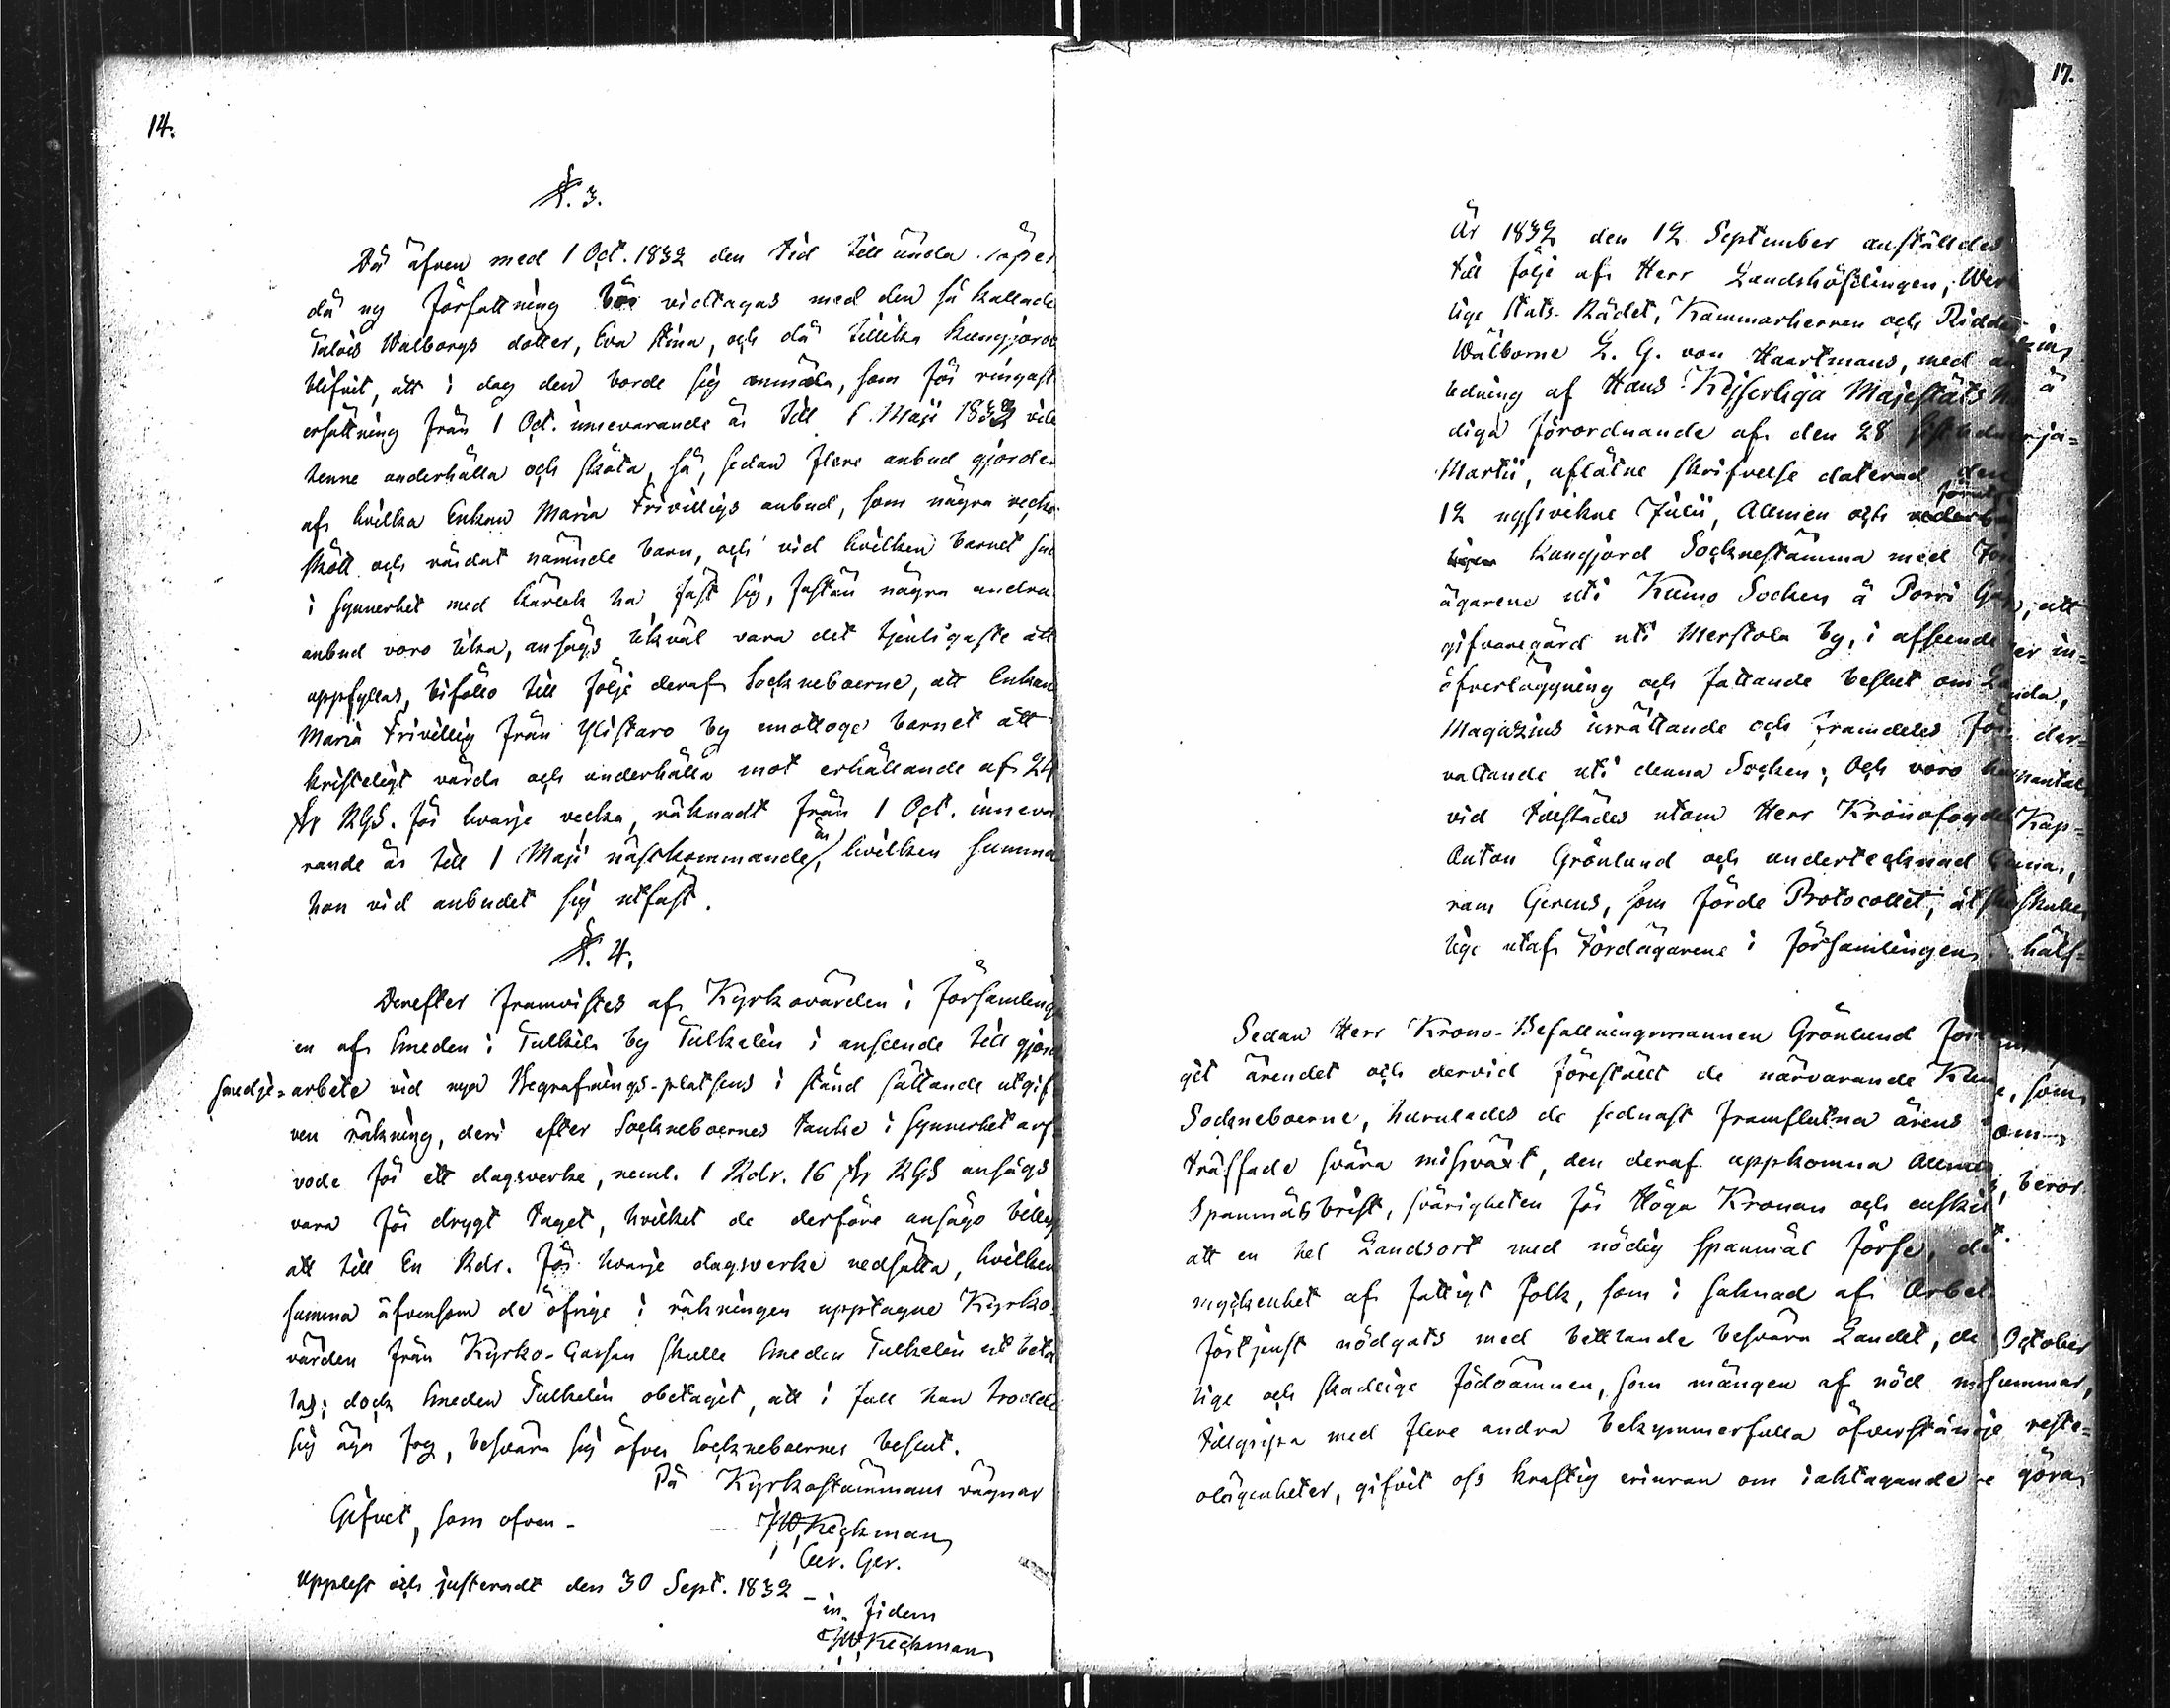 14.
§. 3.
Då äfven med 1 Oct. 1832 den tid till ända löper
då ny författning bör vidtagas med den så kallade
Talois Walborgs dotter, Eva Stina, och då tillika kungjord
blifvit, att i dag den borde sig anmäla, som för ringast
ersättning från 1 Oct. innevarande år till 1 Maji 1833 vill
henne underhålla och sköta, så, sedan flere anbud gjordes
af hvilka Enkan Maria Frivilligs anbud, som några veckor
skött och vårdat nämnde barn, och vid hvilken barnet
i synnerhet med kärlek ha fäst sig, fastän några andra
anbud voro lika, ansågs likväl vara det tjenligaste att
uppfyllas, biföllo till följe deraf Sockneboerne, att Enkan
Maria Frivillig från Ylistaro by emottoge barnet att
kristeligt vårda och underhålla mot erhållande af 24
sk RGS. för hvarje vecka, räknadt från 1 Oct. inneva
rande år till 1 Maji nästkommande år, hvilken summa
hon vid anbudet sig utfäst.
§. 4.
Derefter framvistes af Kyrkovärden i församlinge
en af Smeden i Tulkila by Tulkelin i anseende till gjord
smedje-arbete vid nya Begrafnings-platsens i stånd sättande utgif
ven räkning, deri efter Sockneboernes tanke i synnerhet arf
vode för ett dagsverke, neml. 1 Rdr. 16 sk RGS ansågs
vara för drygt taget, hvilket de derföre ansågo billigt
att till En Rdr. för hvarje dagsverke nedsätta, hvilken
summa äfvensom de öfrige i räkningen upptagne Kyrko-
värden från Kyrko-Cassan skulle Smeden Tulkelin ut beta
las; dock Smeden Tulkelin obetaget, att i fall han trodde
sig äga fog, besvära sig öfver Sockneboernes beslut.
På Kyrkostämmans vägnar
Gifvet, som ofvan - JW Keckman
Cur. Ger.
Upplest och justeradt den 30 Sept. 1832 -
in fidem
JW Keckman
17.
År 1832 den 12 September anställdes
till följe af Herr Landshöfdingen, Wer
lige Stats-Rådet, Kammarherren och Ridda
Wälborne L. G. von Haartmans, med an
ledning af Hans Kejserliga Majestäts N
diga förordnande af den 28 sistledne
Martii, aflåtne skrifvelse daterad den
12 nystvekne Julii, Allmen och
kungjord Socknestämma med Jord
ägarene uti Kumo Socken å Porri Gäst
gifvaregård uti Merstola by, i afseende
öfverläggning och fattande beslut om
Magazins inrättande och framdeles för
valtande uti denna Socken; Och voro här
vid tillstädes utom Herr Kronofogden
Anton Grönlund och undertecknad
ram Gerens, som förde Protocollet, åtski
lige utaf Jordägarene i församlingen.
Sedan Herr Krono-Befallningsmannen Grönlund före
git ärendet och dervid föreställt de närvarande Kumo
Sockneboerne, hurulades de sednast framflutna årens
träffade svåra missväxt, den deraf uppkomna Allmän
Spanmåls brist, svårigheten för Höga Kronan och enskilt
att en hel Landsort med nödig spanmål förse, de
myckenhet af fattigt folk, som i saknad af Arbets
förtjenst nödgats med bettlande besvära Landet, de
lige och skadlige födoämnen, som mången af nöd
tillgripa med flere andra bekymmerfulla
olägenheter, gifvit oss kraftig erinran om iakttagande
October
summar,
reste=
göra